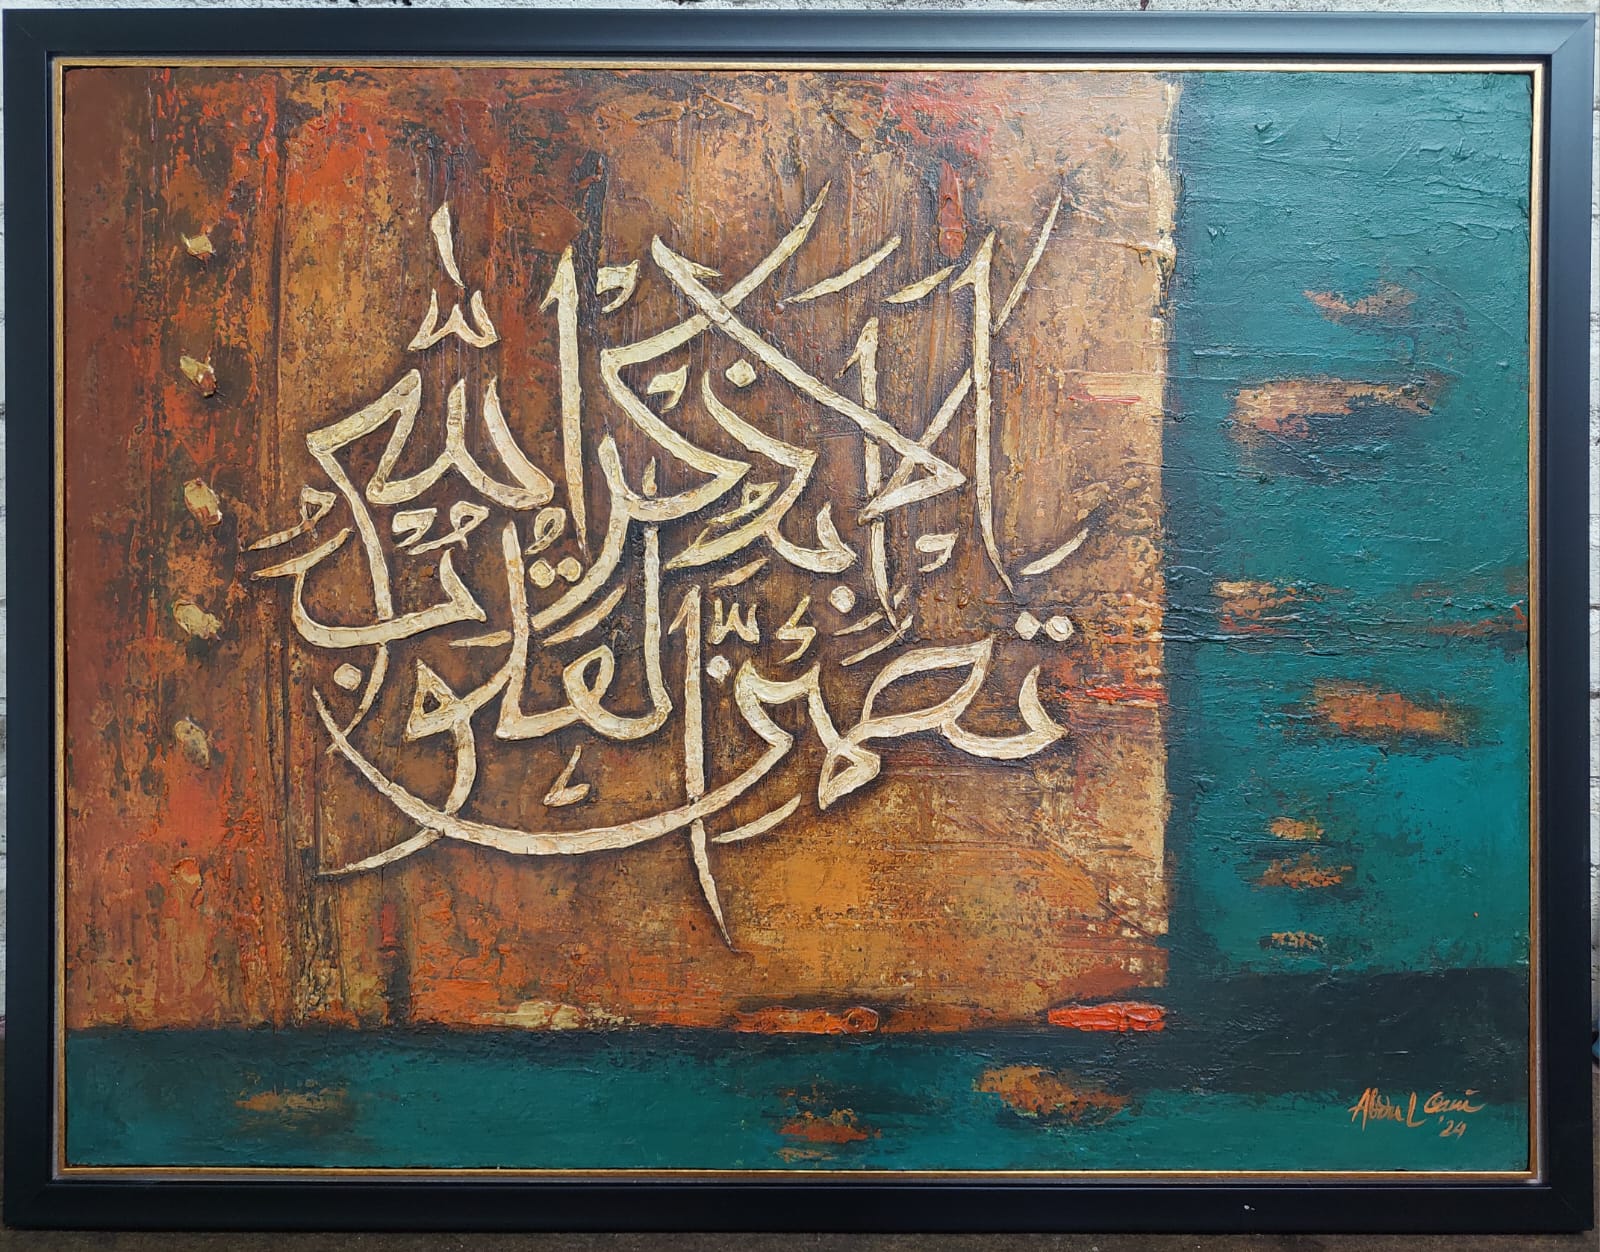 ألا بذكر الله
تطمئن القلوب
Abdul Gani
'24